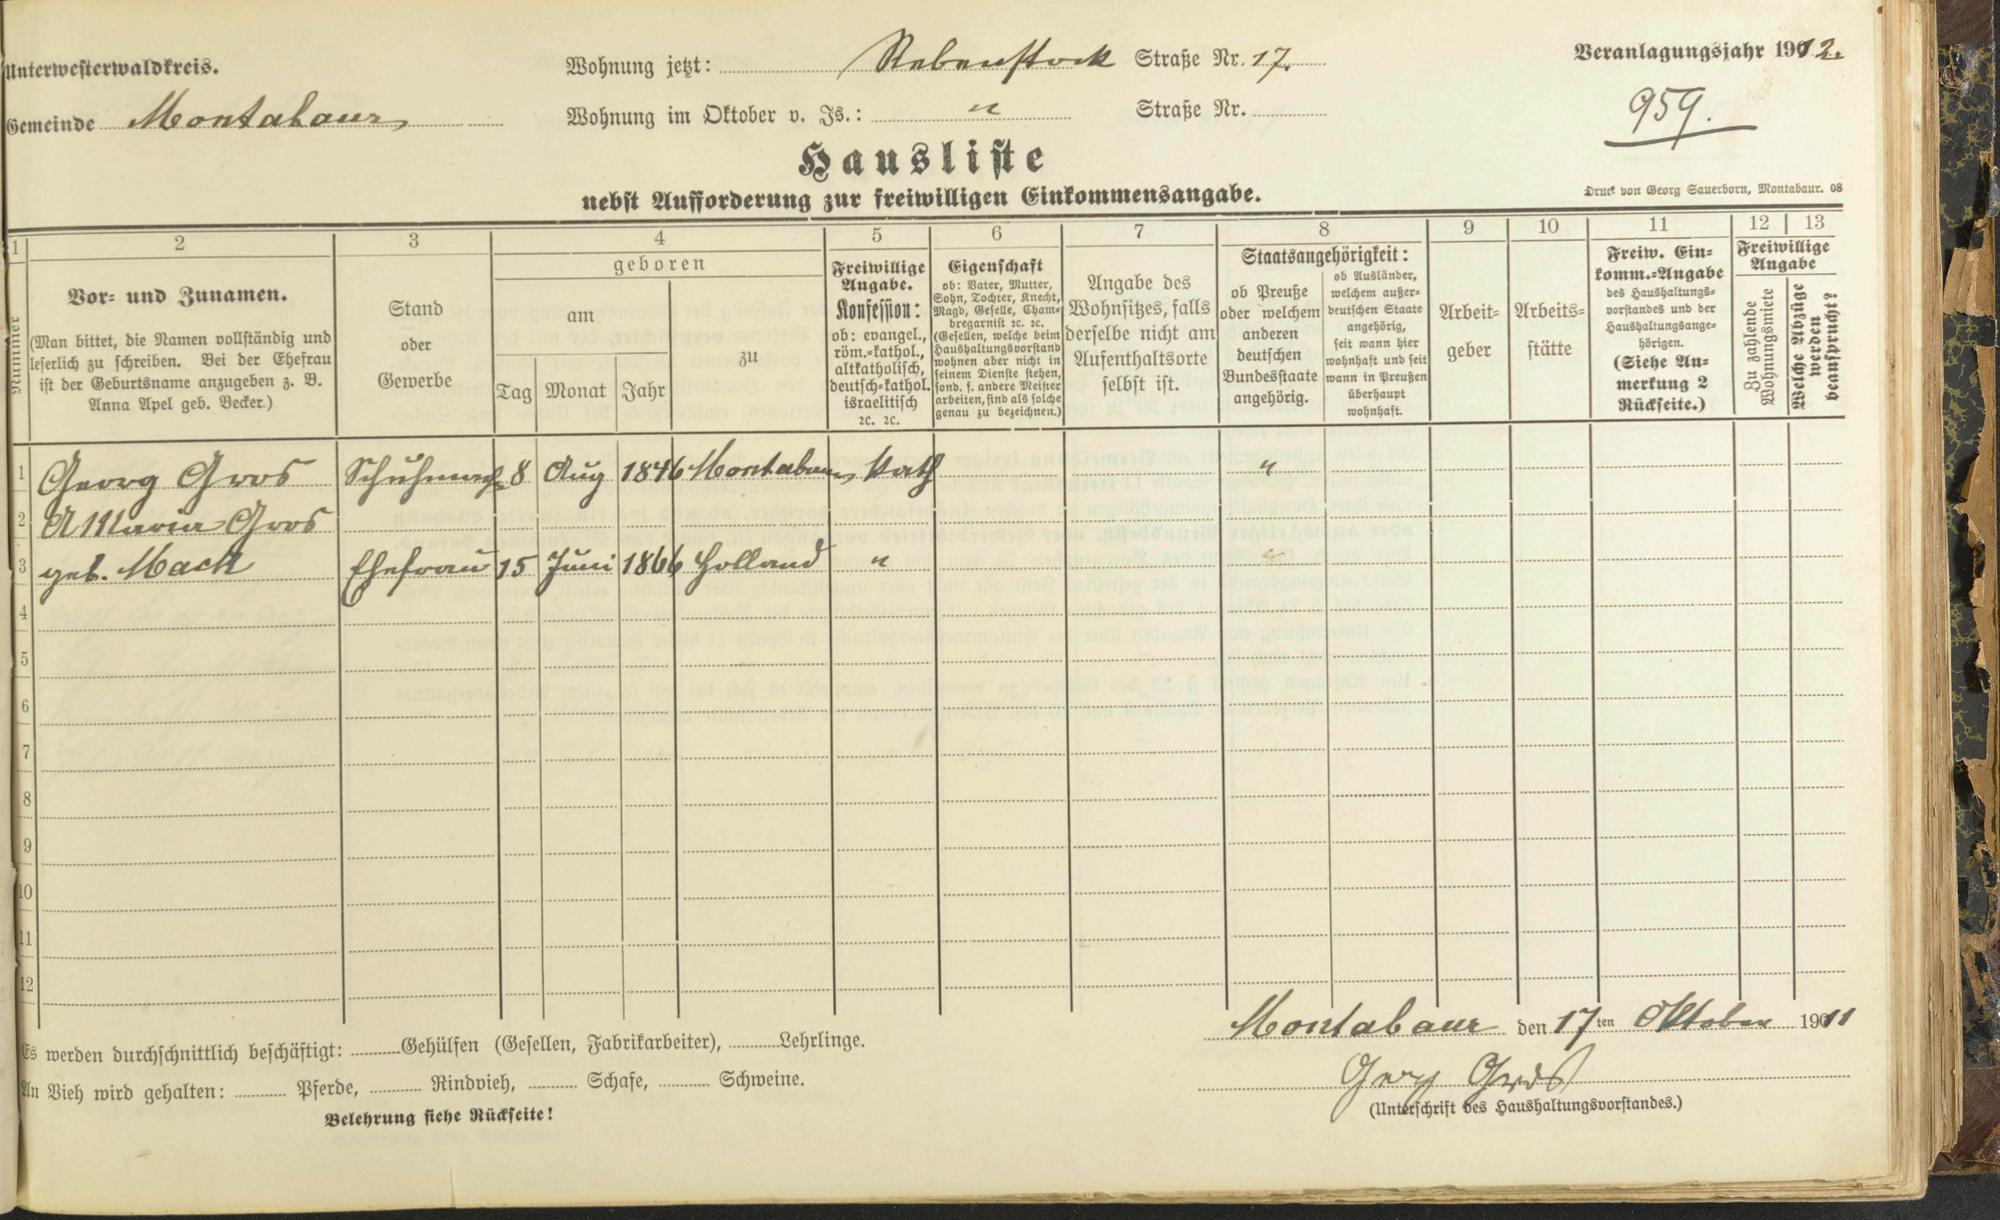 Unterwesterwaldkreis.
Gemeinde Montabaur
Wohnung jetzt: Rebenstock Straße Nr. 17.
Wohnung im Oktober v. Js.: " Straße Nr.
Veranlagungsjahr 1912.
959.
Hausliste
nebst Aufforderung zur freiwilligen Einkommensangabe.
Druck von Georg Sauerborn, Montabaur. 08
1 2 3 4 5 6 7 8 9 10 11 12 13
Nummer
Vor- und Zunamen.
(Man bittet, die Namen vollständig und
leserlich zu schreiben. Bei der Ehefrau
ist der Geburtsname anzugeben z. B.
Anna Apel geb. Becker.)
Stand
oder
Gewerbe
geboren
am
Tag Monat Jahr
zu
Freiwillige
Angabe.
Konfession:
ob: evangel.,
röm.-kathol.,
altkatholisch,
deutsch-kathol.
israelitisch
ꝛc. ꝛc.
Eigenschaft
ob: Vater, Mutter,
Sohn, Tochter, Knecht,
Magd, Geselle, Cham-
bregarnist ꝛc. ꝛc.
(Gesellen, welche beim
Haushaltungsvorstand
wohnen aber nicht in
seinem Dienste stehen,
sond. f. andere Meister
arbeiten, sind als solche
genau zu bezeichnen.)
Angabe des
Wohnsitzes, falls
derselbe nicht am
Aufenthaltsorte
selbst ist.
Staatsangehörigkeit:
ob Preuße
oder welchem
anderen
deutschen
Bundesstaate
angehörig.
ob Ausländer,
welchem außer-
deutschen Staate
angehörig,
seit wann hier
wohnhaft und seit
wann in Preußen
überhaupt
wohnhaft.
Arbeit-
geber
Arbeits-
stätte
Freiw. Ein-
komm.-Angabe
des Haushaltungs-
vorstandes und der
Haushaltungsange-
hörigen.
(Siehe An-
merkung 2
Rückseite.)
Freiwillige
Angabe
Zu zahlende
Wohnungsmiete
Welche Abzüge
werden
beansprucht?
1 Georg Gros Schuhmach 8 Aug 1846 Montabaur Kath "
2 A Maria Gros
3 geb. Mack Ehefrau 15 Juni 1866 Holland " "
4
5
6
7
8
9
10
11
12
Montabaur den 17ten Oktober 1911
Georg Gros
(Unterschrift des Haushaltungsvorstandes.)
Es werden durchschnittlich beschäftigt: Gehülfen (Gesellen, Fabrikarbeiter), Lehrlinge.
An Vieh wird gehalten: Pferde, Rindvieh, Schafe, Schweine.
Belehrung siehe Rückseite!